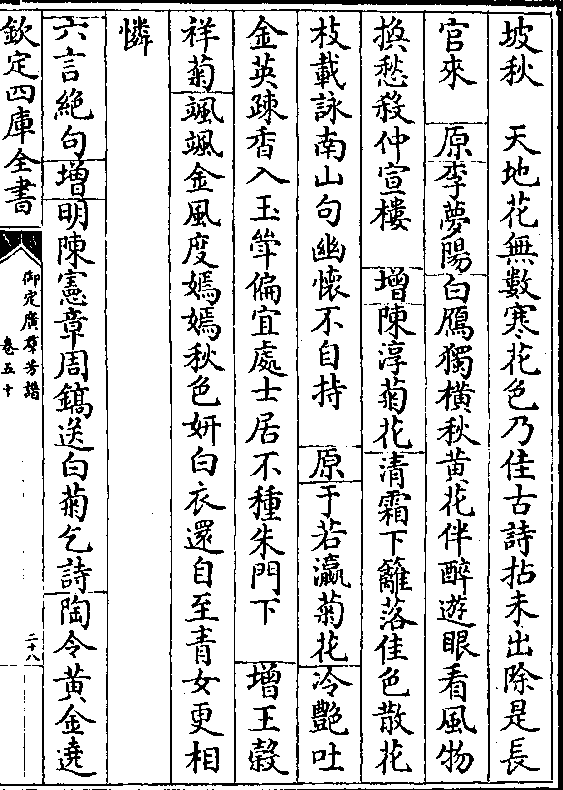 坡秋　天地花無數寒花色乃佳古詩拈未出除是長
官來　原李夢陽白鴈獨橫秋黃花伴醉遊眼看風物
換愁殺仲宣樓　增陳淳菊花清霜下籬落佳色散花
枝載詠南山句幽懷不自持　原于若瀛菊花冷艷吐
金英疎香入玉斚偏宜處士居不種朱門下　增王穀
祥菊颯颯金風度嫣嫣秋色妍白衣還自至青女更相
憐
六言絕句增明陳憲章周鎬送白菊乞詩陶令黃金遶
欽定四庫全書
御定廣羣芳譜
卷五十
二十八